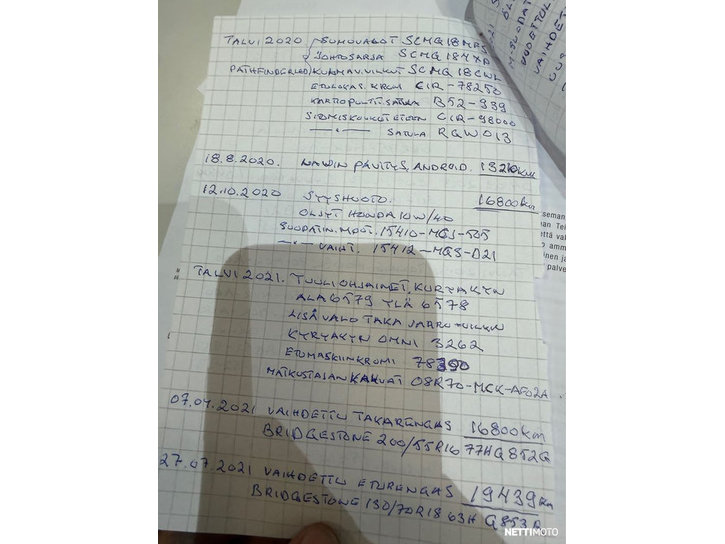 TALVI 2020 SUMUVALOT SCMQ18MPS
JOHTOSARJA SCMQ184XD
PATHFINDERLED KULMAV.VILKUT SCMQ18CWL
ETULOKAS.KROMI CIR-78250
KARTIOPULTTI.SATULA B52-939
SIDMISKOUKUT ETEEN CIR-98000
—"— SATULA RGW013
18.8.2020. NAVIN PÄVITYS, ANDROID. 13210KM
12.10.2020 SYYSHUOTO. 16800km
ÖLJYT HONDA 10W/40
SUODATIN. MOOT. 15410-MCJ-505
—"— VAIHT. 15412-MGS-D21
TALVI 2021. TUULIOHJAIMET, KURYAKYN
ALA 6579 YLÄ 6578
LISÄVALO TAKA JARRU
KYRYAKYN OMNI 3262
ETUMASKIINKROMI 78390
MATKUSTAJAN KAHVAT 08R70-MCK-AF02A.
07.04.2021 VAIHDETTU TAKARENGAS 16800Km
BRIDGESTONE 200/55R16 77H G852G
27.07.2021 VAIHDETTU ETURENGAS 19439Km
BRIDGESTONE 130/70R18 63H G853R
M.SUODAT
VAIHDETT
seman
an Tel
että val
o amm
inen ja
palve
NETTIMOTO